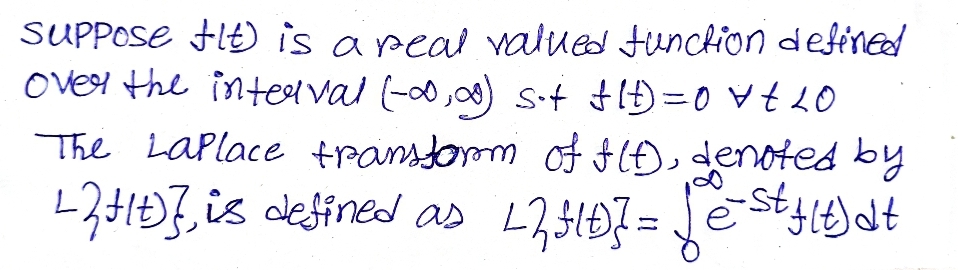 suppose f(t) is a real valued function defined
over the interval (-∞,∞) s.t f(t)=0 ∀ t<0
The Laplace transform of f(t), denoted by
L{f(t)}, is defined as L{f(t)} = ∫₀^∞ e^{-st} f(t) dt